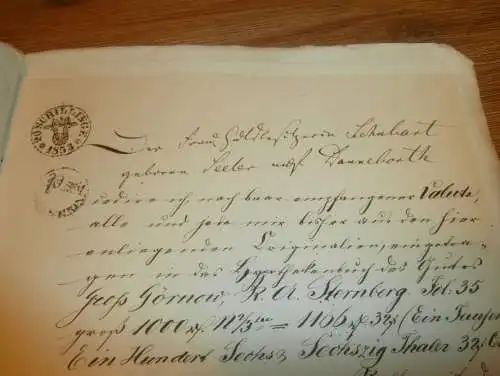 20 SCHILLINGE 1855
Der Frau Gutsbesitzerin Schubart
geboren Seeler auf Danneborth
cedire ich nach baar empfangener Valuta,
alle und jede mir bisher aus den hier
anliegenden Originalien, eingetra-
gen in das Hypothekenbuch des Gutes
Groß Görnow, R. A. Sternberg Fol: 35
groß 1000 N 2/3 = 1166 32 ß (Ein Tausend
Ein Hundert Sechs & Sechszig Thaler 32